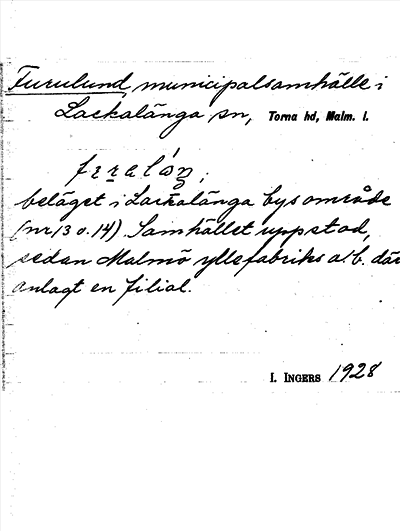 Furulund, municipalsamhälle i
Lackalänga sn, Torna hd, Malm. l.
beläget i Lackalänga bys område
(nr 13 o. 14). Samhället uppstod,
sedan Malmö yllefabriks a/b. där
anlagt en filial.
I. INGERS 1928